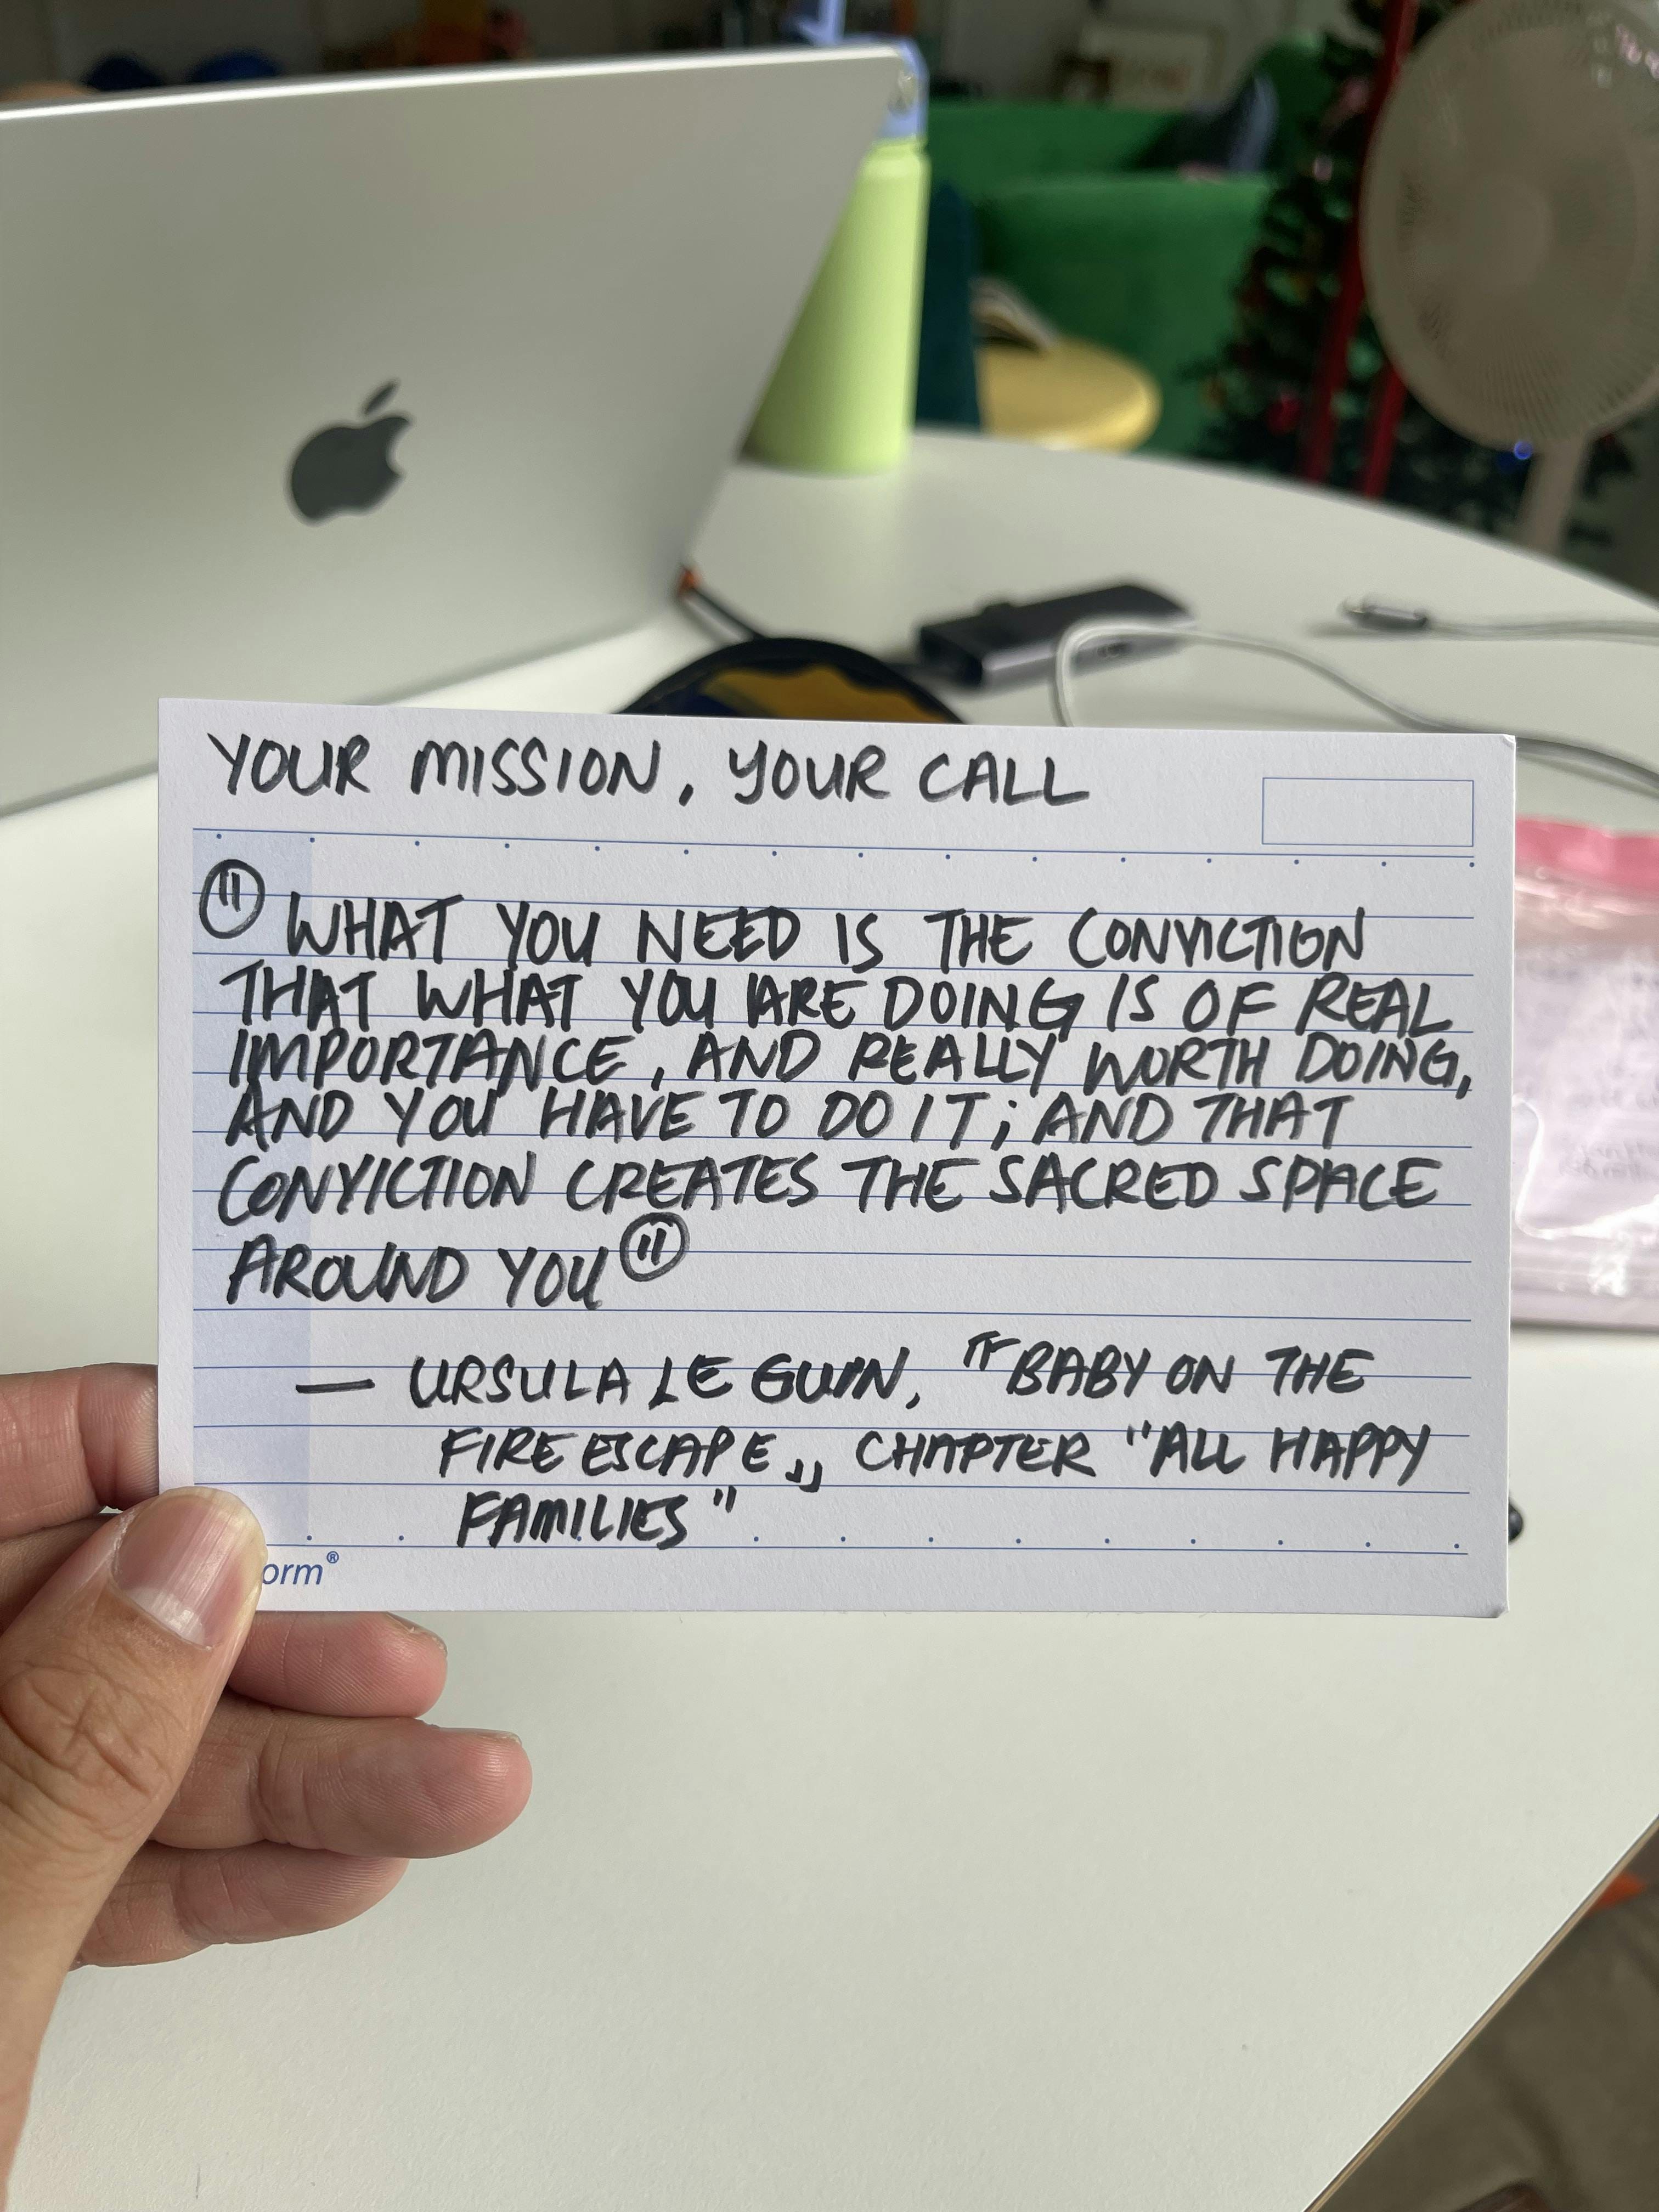 YOUR MISSION, YOUR CALL
" WHAT YOU NEED IS THE CONVICTION
THAT WHAT YOU ARE DOING IS OF REAL
IMPORTANCE, AND REALLY WORTH DOING,
AND YOU HAVE TO DO IT; AND THAT
CONVICTION CREATES THE SACRED SPACE
AROUND YOU "
— URSULA LE GUIN, 『BABY ON THE
FIRE ESCAPE』, CHAPTER "ALL HAPPY
FAMILIES"
orm®